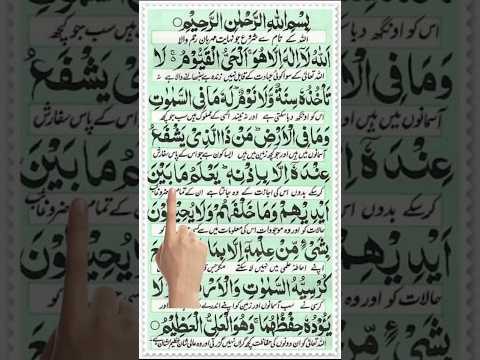 بِسْمِ اللهِ الرَّحْمٰنِ الرَّحِيْمِ
اللہ کے نام سے شروع جو نہایت مہربان رحم والا
اَللهُ لَآ اِلٰهَ اِلَّا هُوَ ۚ اَلْحَيُّ الْقَيُّوْمُ ۚ لَا
اللہ تعالیٰ کے سوا کوئی عبادت کے قابل نہیں زندہ ہے سنبھالنے والا ہے نہ
تَاْخُذُهٗ سِنَةٌ وَّلَا نَوْمٌ ؕ لَهٗ مَا فِي السَّمٰوٰتِ
اس کو اونگھ دبا سکتی ہے اور نہ نیند اسی کے مملوک ہیں سب جو کچھ
وَمَا فِي الْاَرْضِ ؕ مَنْ ذَا الَّذِيْ يَشْفَعُ
آسمانوں میں ہیں اور جو کچھ زمین میں ہیں ایسا کون ہے جو اس کے پاس سفارش
عِنْدَهٗٓ اِلَّا بِاِذْنِهٖ ؕ يَعْلَمُ مَا بَيْنَ
کر سکے بدوں اس کی اجازت کے وہ جانتا ہے ان کے تمام
اَيْدِيْهِمْ وَمَا خَلْفَهُمْ ۚ وَلَا يُحِيْطُوْنَ
حالات کو اور وہ موجودات اس کی معلومات میں سے
بِشَيْءٍ مِّنْ عِلْمِهٖٓ اِلَّا بِمَا
اپنے احاطۂ علمی میں نہیں لا سکتے مگر جس
كُرْسِيُّهُ السَّمٰوٰتِ وَالْاَرْضَ
کرسی نے سب آسمانوں اور زمین کو اپنے اندر
يَـُٔوْدُهٗ حِفْظُهُمَا ۚ وَهُوَ الْعَلِيُّ الْعَظِيْمُ
اللہ تعالیٰ کو ان دونوں کی حفاظت کچھ گراں نہیں گزرتی اور وہ عالی شان عظیم الشان ہے